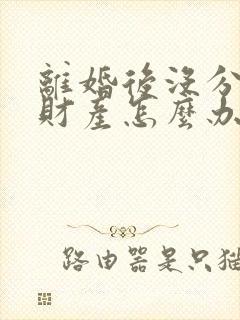 離婚後沒分
財產怎麼办
路由器是只猫